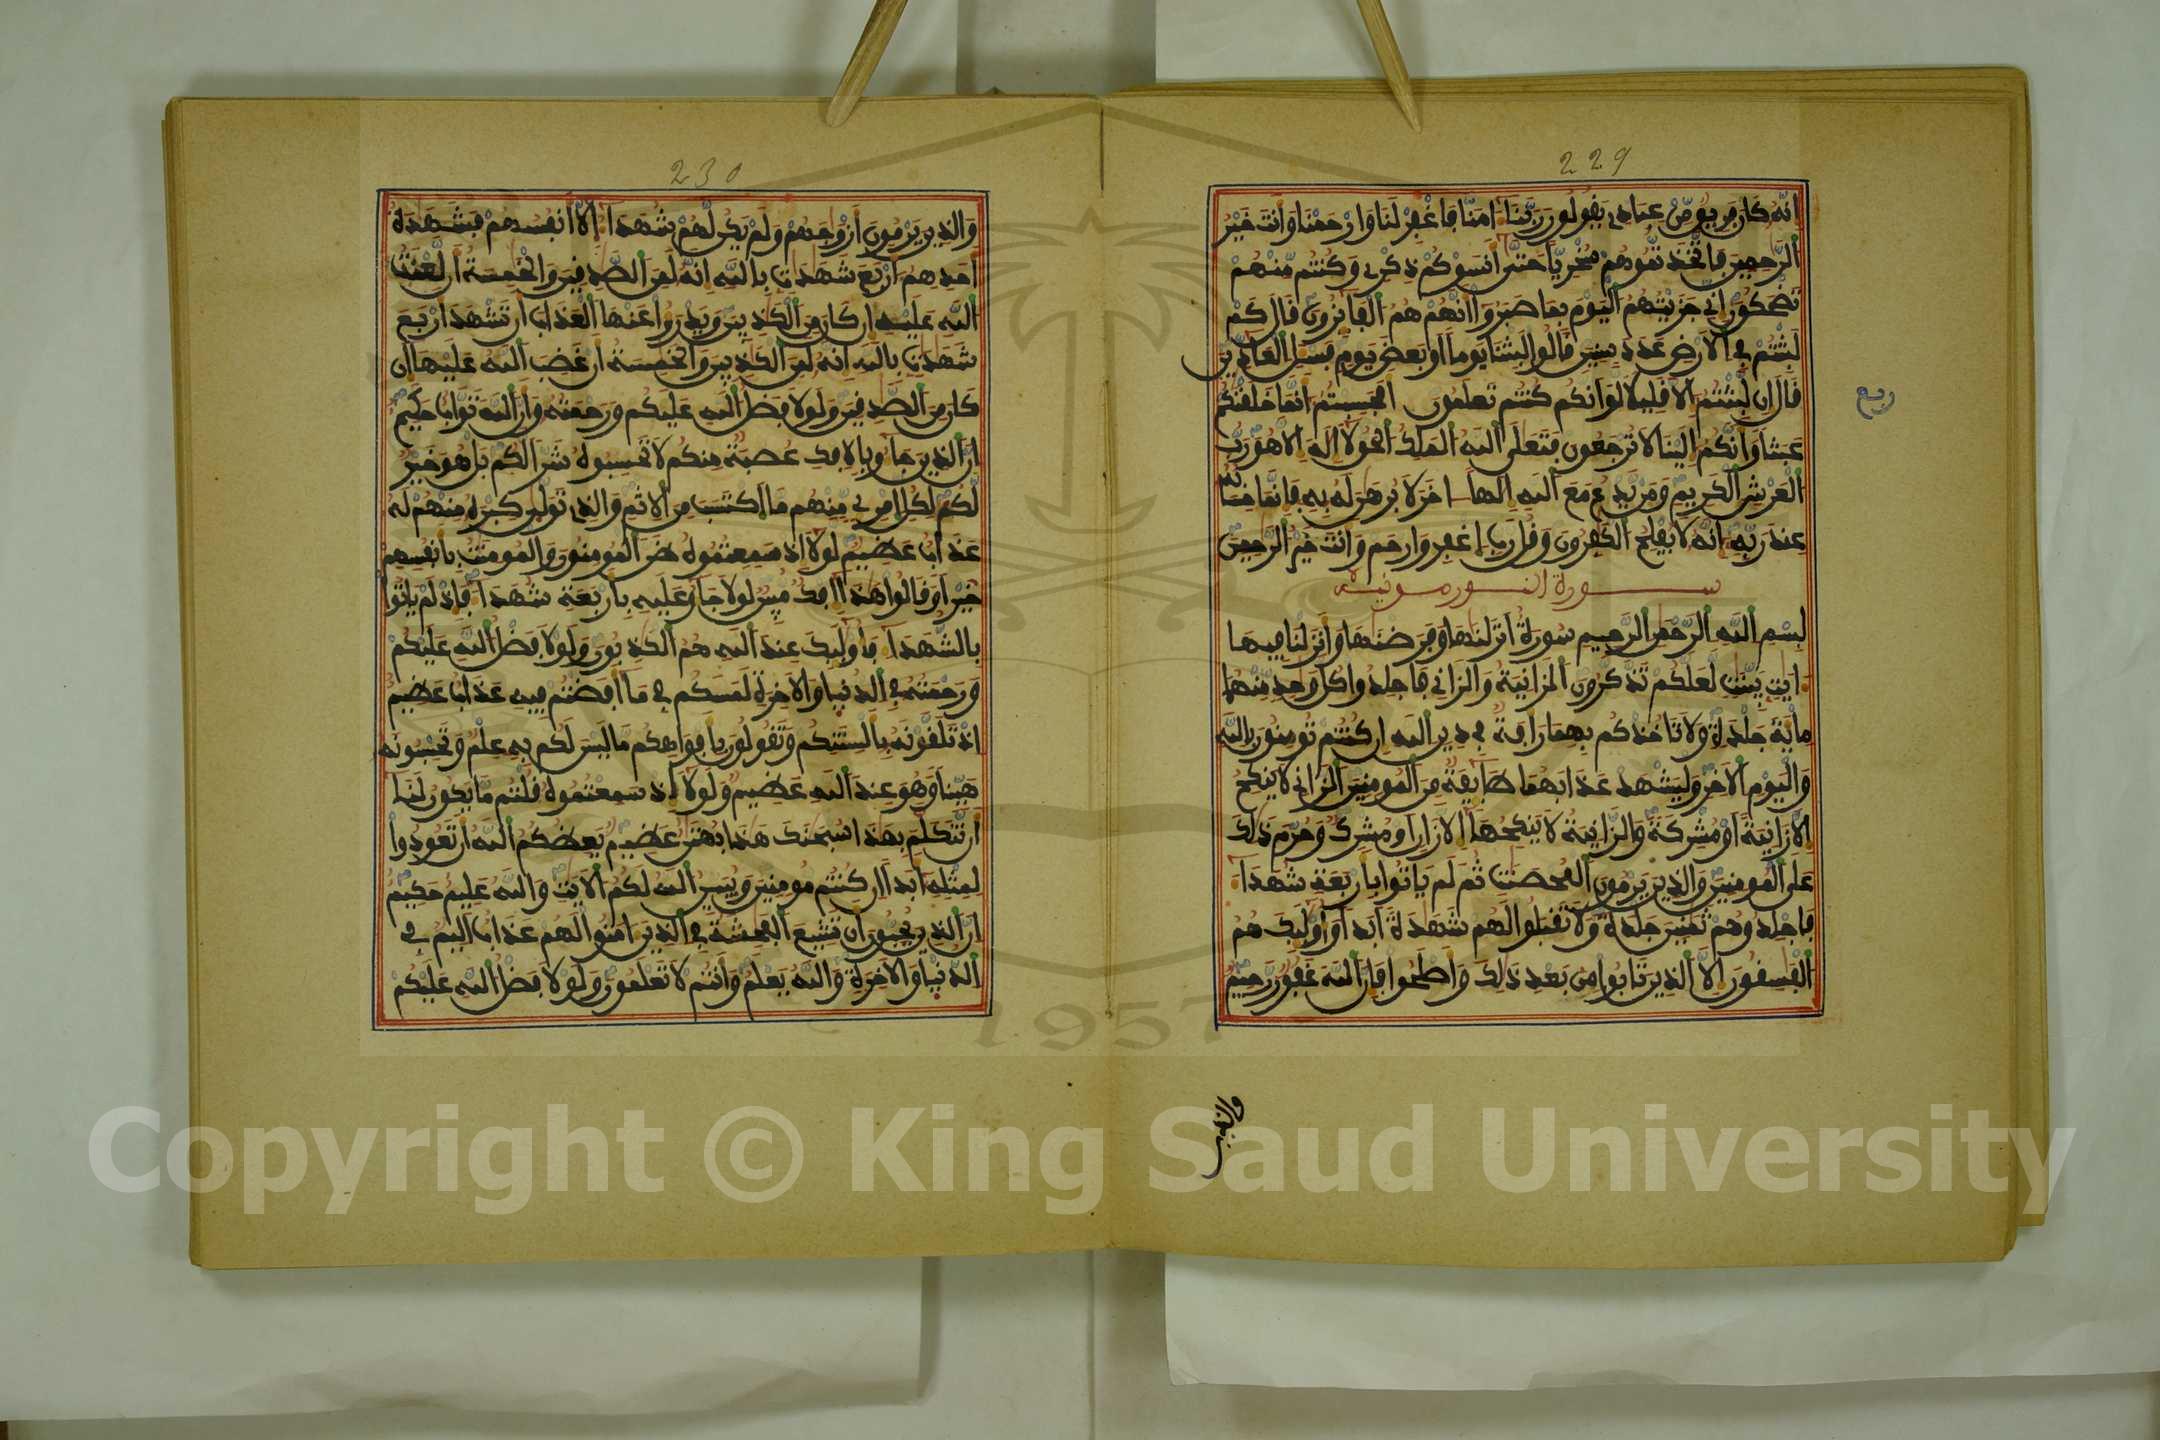 229
انه كان فريق من عبادي يقولون ربنا ءامنا فاغفر لنا وارحمنا وانت خير
الرحمين فاتخذتموهم سخريا حتى انسوكم ذكري وكنتم منهم
تضحكون اني جزيتهم اليوم بما صبروا انهم هم الفايزون قال كم
لبثتم في الارض عدد سنين قالوا لبثنا يوما او بعض يوم فسل العادين
قال ان لبثتم الا قليلا لو انكم كنتم تعلمون افحسبتم انما خلقنكم
عبثا وانكم الينا لا ترجعون فتعلى الله الملك الحق لا اله الا هو رب
العرش الكريم ومن يدع مع الله الها اخر لا برهن له به فانما حسابه
عند ربه انه لا يفلح الكفرون وقل رب اغفر وارحم وانت خير الرحمين
سورة النور مدنية
بسم الله الرحمن الرحيم سورة انزلنها وفرضنها وانزلنا فيها
ءايت بينت لعلكم تذكرون الزانية والزاني فاجلدوا كل وحد منهما
ماية جلدة ولا تاخذكم بهما رافة في دين الله ان كنتم تومنون بالله
واليوم الاخر وليشهد عذابهما طايفة من المومنين الزاني لا ينكح
الا زانية او مشركة والزانية لا ينكحها الا زان او مشرك وحرم ذلك
على المومنين والذين يرمون المحصنت ثم لم ياتوا باربعة شهدا
فاجلدوهم ثمنين جلدة ولا تقبلوا لهم شهدة ابدا واوليك هم
الفسقون الا الذين تابوا من بعد ذلك واصلحوا فان الله غفور رحيم
والذين
ربع
230
والذين يرمون ازوجهم ولم يكن لهم شهدا الا انفسهم فشهدة
احدهم اربع شهدت بالله انه لمن الصدقين والخمسة ان لعنت
الله عليه ان كان من الكذبين ويدروا عنها العذاب ان تشهد اربع
شهدت بالله انه لمن الكذبين والخمسة ان غضب الله عليها ان
كان من الصدقين ولولا فضل الله عليكم ورحمته وان الله تواب حكيم
ان الذين جاو بالافك عصبة منكم لا تحسبوه شرا لكم بل هو خير
لكم لكل امري منهم ما اكتسب من الاثم والذي تولى كبره منهم له
عذاب عظيم لولا اذ سمعتموه ظن المومنون والمومنت بانفسهم
خيرا وقالوا هذا افك مبين لولا جاو عليه باربعة شهدا فاذ لم ياتوا
بالشهدا فاوليك عند الله هم الكذبون ولولا فضل الله عليكم
ورحمته في الدنيا والاخرة لمسكم في ما افضتم فيه عذاب عظيم
اذ تلقونه بالسنتكم وتقولون بافواهكم ما ليس لكم به علم وتحسبونه
هينا وهو عند الله عظيم ولولا اذ سمعتموه قلتم ما يكون لنا
ان نتكلم بهذا سبحنك هذا بهتن عظيم يعظكم الله ان تعودوا
لمثله ابدا ان كنتم مومنين ويبين الله لكم الايت والله عليم حكيم
ان الذين يحبون ان تشيع الفحشة في الذين امنوا لهم عذاب اليم في
الدنيا والاخرة والله يعلم وانتم لا تعلمون ولولا فضل الله عليكم
1957
Copyright © King Saud University